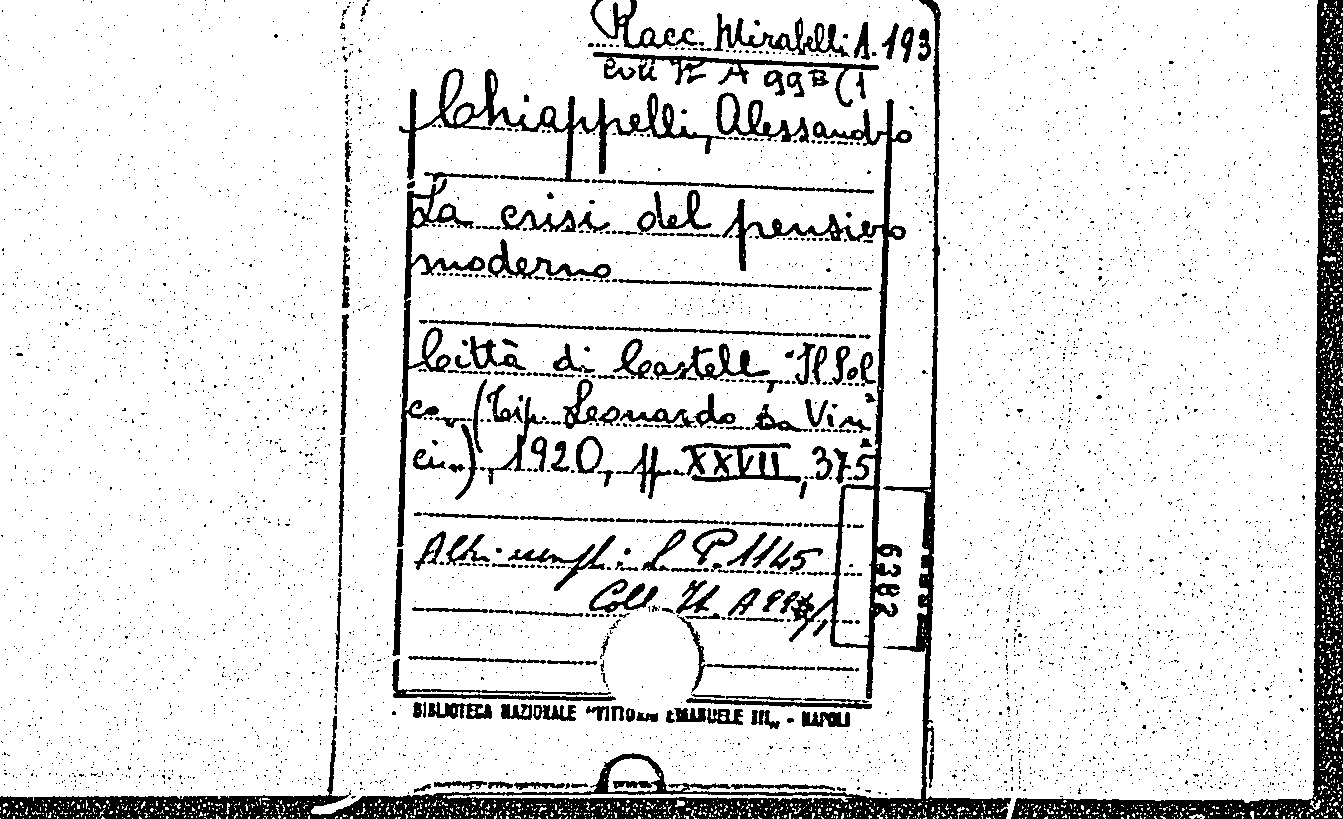 Racc. Mirabelli A. 193
Coll It A 99 B (1
Chiappelli, Alessandro
La crisi del pensiero
moderno
Città di Castell, "Il Sol
co" (Tip. Leonardo da Vin
ci"), 1920, pp. XXVII, 375
Altri esempl.: L. P. 1145
Coll. It. A 99 B/1
6382
BIBLIOTECA NAZIONALE "VITTORIO EMANUELE III" - NAPOLI